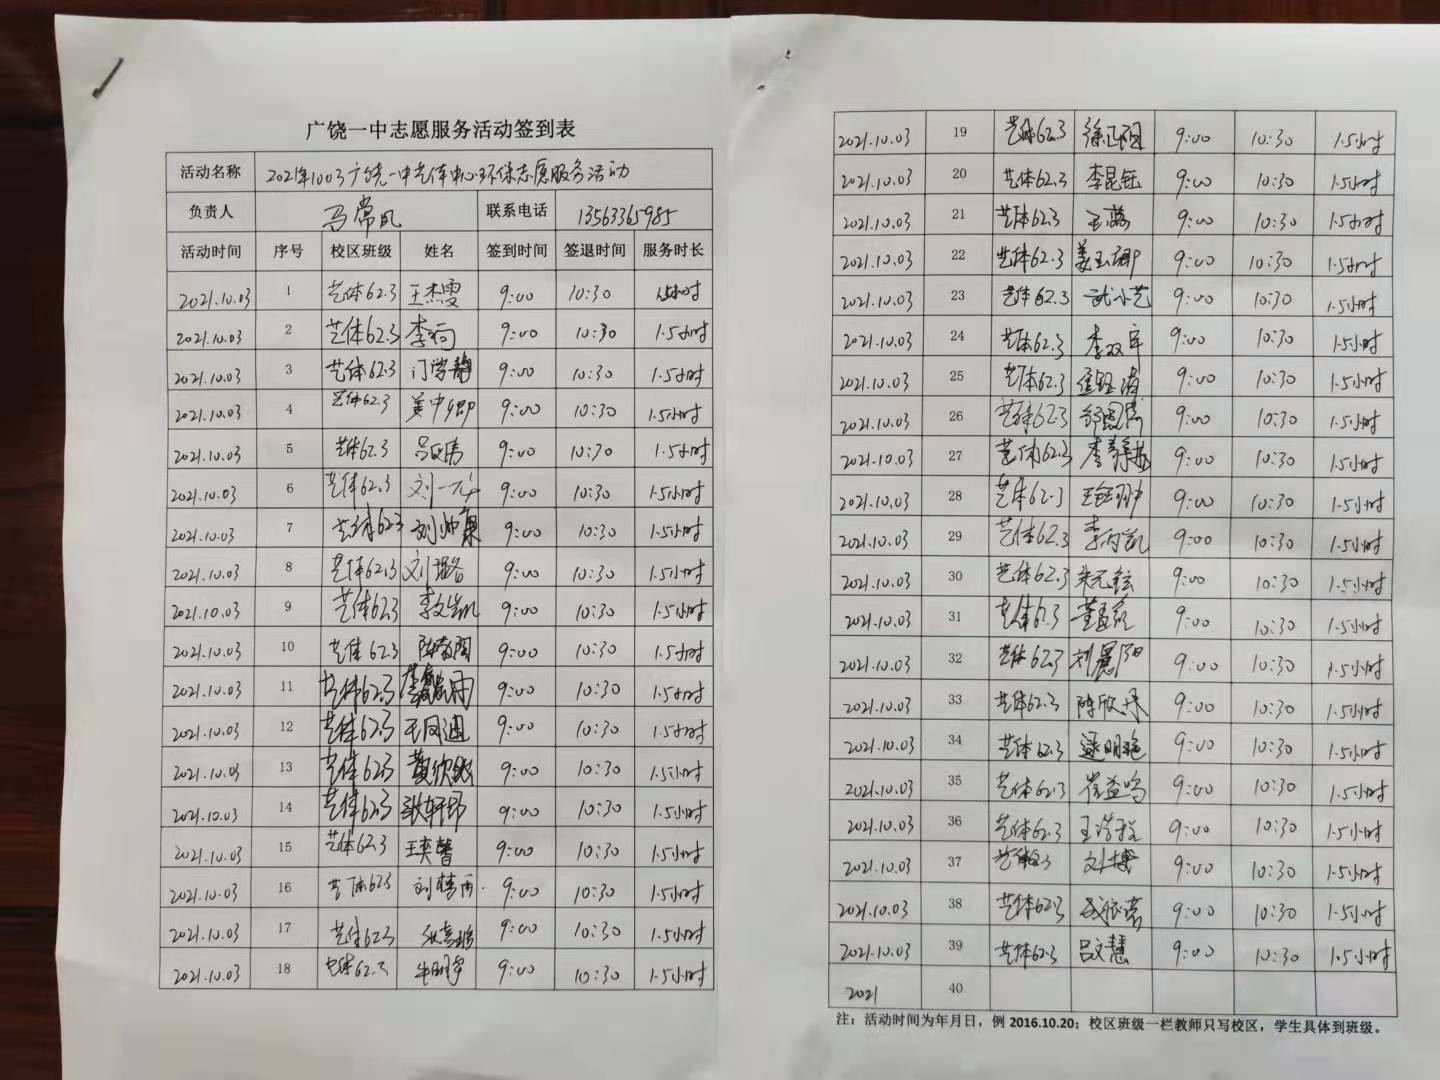 广饶一中志愿服务活动签到表
活动名称 2021年1003广饶一中艺体中心环保志愿服务活动
负责人 马常凤 联系电话 13563365985
活动时间 序号 校区班级 姓名 签到时间 签退时间 服务时长
2021.10.03 1 艺体62.3 王杰雯 9:00 10:30
2021.10.03 2 艺体62.3 9:00 10:30 1.5小时
2021.10.03 3 艺体62.3 门学静 9:00 10:30 1.5小时
2021.10.03 4 艺体62.3 9:00 10:30 1.5小时
2021.10.03 5 艺体62.3 9:00 10:30 1.5小时
2021.10.03 6 艺体62.3 9:00 10:30 1.5小时
2021.10.03 7 艺体62.3 刘帅康 9:00 10:30 1.5小时
2021.10.03 8 艺体62.3 刘璐 9:00 10:30 1.5小时
2021.10.03 9 艺体62.3 李文凯 9:00 10:30 1.5小时
2021.10.03 10 艺体62.3 9:00 10:30 1.5小时
2021.10.03 11 艺体62.3 9:00 10:30 1.5小时
2021.10.03 12 艺体62.3 9:00 10:30 1.5小时
2021.10.03 13 艺体62.3 9:00 10:30 1.5小时
2021.10.03 14 艺体62.3 9:00 10:30 1.5小时
2021.10.03 15 艺体62.3 9:00 10:30 1.5小时
2021.10.03 16 艺体62.3 9:00 10:30 1.5小时
2021.10.03 17 艺体62.3 9:00 10:30 1.5小时
2021.10.03 18 艺体62.3 牛明宇 9:00 10:30 1.5小时
2021.10.03 19 艺体62.3 徐正阳 9:00 10:30 1.5小时
2021.10.03 20 艺体62.3 李昆钰 9:00 10:30 1.5小时
2021.10.03 21 艺体62.3 9:00 10:30 1.5小时
2021.10.03 22 艺体62.3 姜玉卿 9:00 10:30 1.5小时
2021.10.03 23 艺体62.3 武小艺 9:00 10:30 1.5小时
2021.10.03 24 艺体62.3 9:00 10:30 1.5小时
2021.10.03 25 艺体62.3 9:00 10:30 1.5小时
2021.10.03 26 艺体62.3 9:00 10:30 1.5小时
2021.10.03 27 艺体62.3 9:00 10:30 1.5小时
2021.10.03 28 艺体62.3 9:00 10:30 1.5小时
2021.10.03 29 艺体62.3 9:00 10:30 1.5小时
2021.10.03 30 艺体62.3 朱元铉 9:00 10:30 1.5小时
2021.10.03 31 艺体62.3 9:00 10:30 1.5小时
2021.10.03 32 艺体62.3 刘晨阳 9:00 10:30 1.5小时
2021.10.03 33 艺体62.3 陈欣丹 9:00 10:30 1.5小时
2021.10.03 34 艺体62.3 逯明艳 9:00 10:30 1.5小时
2021.10.03 35 艺体62.3 崔益鸣 9:00 10:30 1.5小时
2021.10.03 36 艺体62.3 王浩程 9:00 10:30 1.5小时
2021.10.03 37 刘博 9:00 10:30 1.5小时
2021.10.03 38 艺体62.3 9:00 10:30 1.5小时
2021.10.03 39 艺体62.3 吕文慧 9:00 10:30 1.5小时
2021 40
注：活动时间为年月日，例 2016.10.20；校区班级一栏教师只写校区，学生具体到班级。